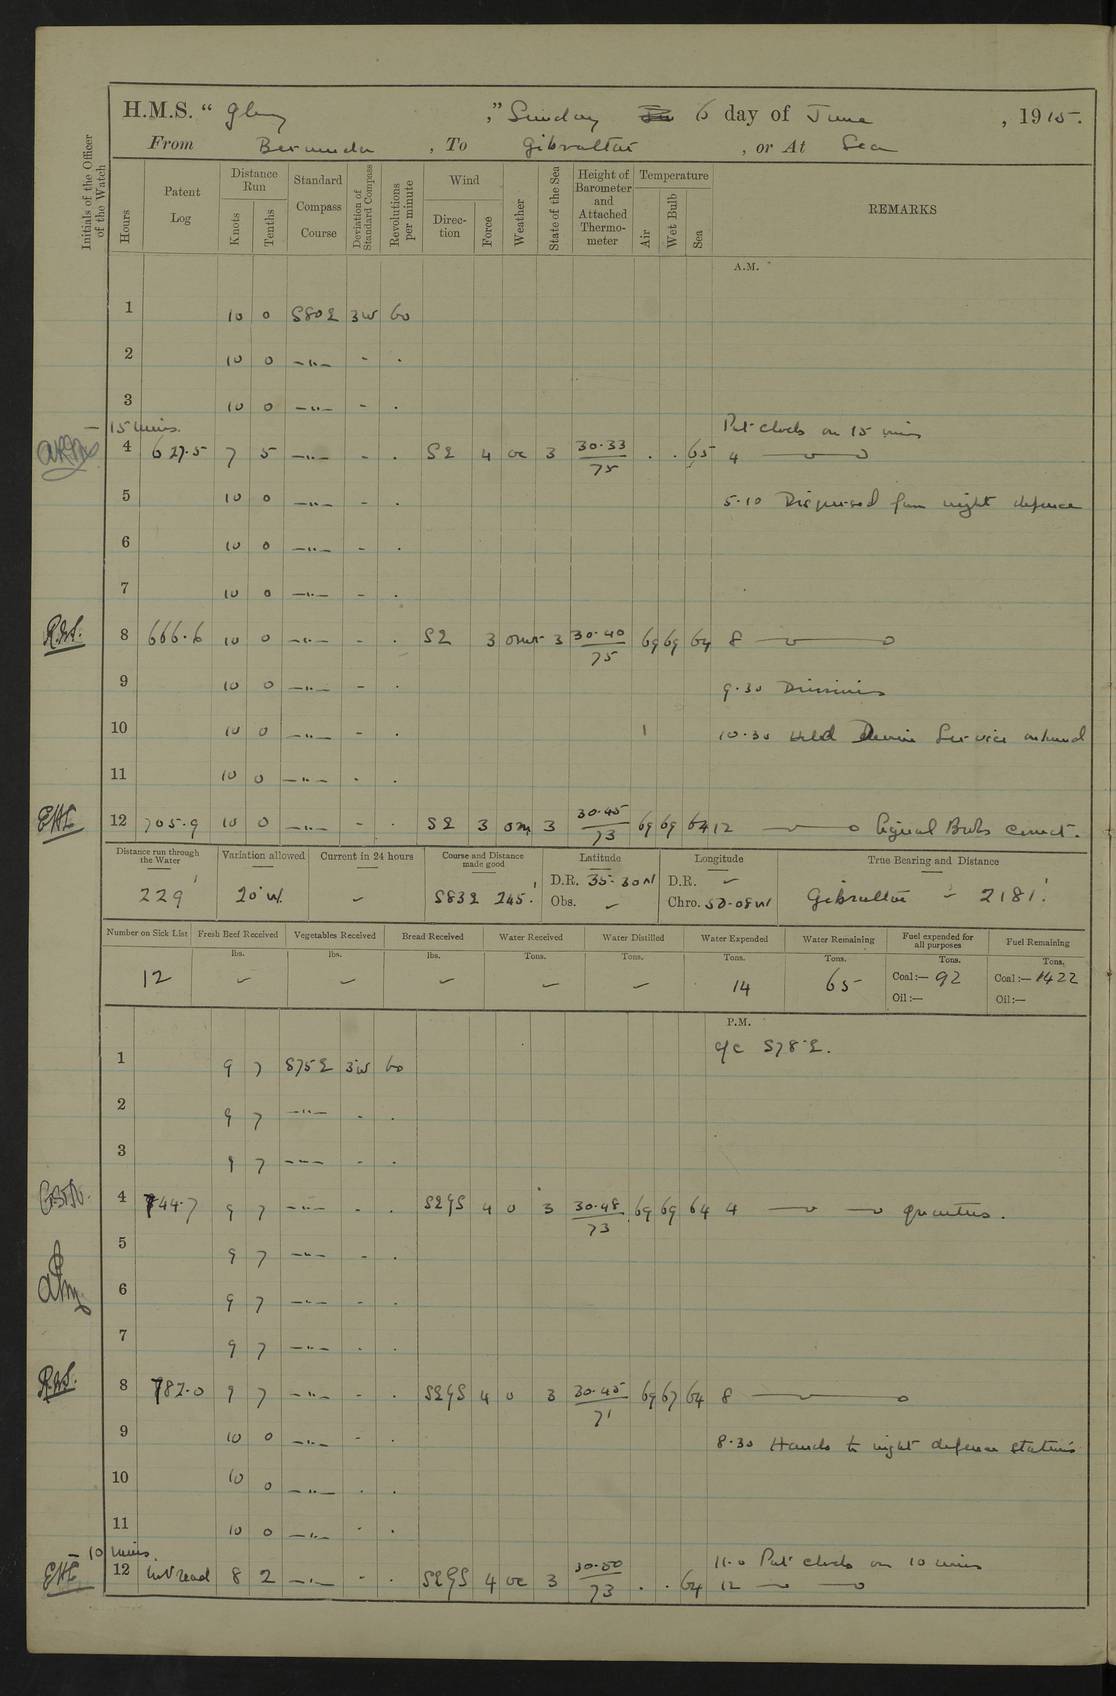 H.M.S. “ Glory ,” Sunday 6 day of June , 1915.
From Bermuda , To Gibraltar , or At Sea
Initials of the Officer of the Watch
Hours
Patent Log
Distance Run
Knots
Tenths
Standard Compass Course
Deviation of Standard Compass
Revolutions per minute
Wind
Direction
Force
Weather
State of the Sea
Height of Barometer and Attached Thermometer
Temperature
Air
Wet Bulb
Sea
REMARKS
A.M.
1 10 0 S80E 3W 60
2 10 0 —"— - .
3 10 0 —"— - .
— 15 mins. Put clocks on 15 mins
4 627.5 7 5 —"— - . SE 4 oc 3 30.33 / 75 . . 65 4
5 10 0 —"— - . 5.10 Dispersed from night defence
6 10 0 —"— - .
7 10 0 —"— - .
8 666.6 10 0 —"— - . SE 3 omr 3 30.40 / 75 69 69 64 8
9 10 0 —"— - . 9.30 Divisions
10 10 0 —"— - . 10.30 Held Divine Service onboard
11 10 0 —"— - .
EHL 12 705.9 10 0 —"— - . SE 3 om 3 30.45 / 73 69 69 64 12 Signal Books correct.
Distance run through the Water
Variation allowed
Current in 24 hours
Course and Distance made good
Latitude
Longitude
True Bearing and Distance
229' 20°W. — S83E 245.' D.R. 35-30N D.R. — Gibraltar — 2181.'
Obs. — Chro. 50-08W
Number on Sick List
Fresh Beef Received
Vegetables Received
Bread Received
Water Received
Water Distilled
Water Expended
Water Remaining
Fuel expended for all purposes
Fuel Remaining
lbs. lbs. lbs. Tons. Tons. Tons. Tons. Tons. Tons.
12 — — — — — 14 65 Coal:— 92 Coal:— 1422
Oil:— Oil:—
P.M.
a/c S78°E.
1 9 7 S75E 3W 60
2 9 7 —"— - .
3 9 7 —"— - .
4 744.7 9 7 —"— - . SEyS 4 o 3 30.48 / 73 69 69 64 4 quarters.
5 9 7 —"— - .
6 9 7 —"— - .
7 9 7 —"— - .
8 782.0 9 7 —"— - . SEyS 4 o 3 30.45 / 71 69 67 64 8
9 10 0 —"— - . 8.30 Hands to night defence stations
10 10 0 —"— . .
11 10 0 —"— . .
— 10 mins. 11.0 Put clocks on 10 mins
EHL 12 Not read 8 2 —"— - . SEyS 4 oc 3 30.50 / 73 . . 64 12